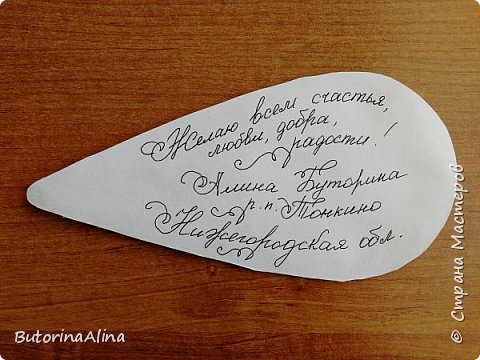 Желаю всем счастья,
любви, добра,
радости!
Алина Буторина
р.п. Тонкино
Нижегородская обл.
ButorinaAlina
© Страна Мастеров